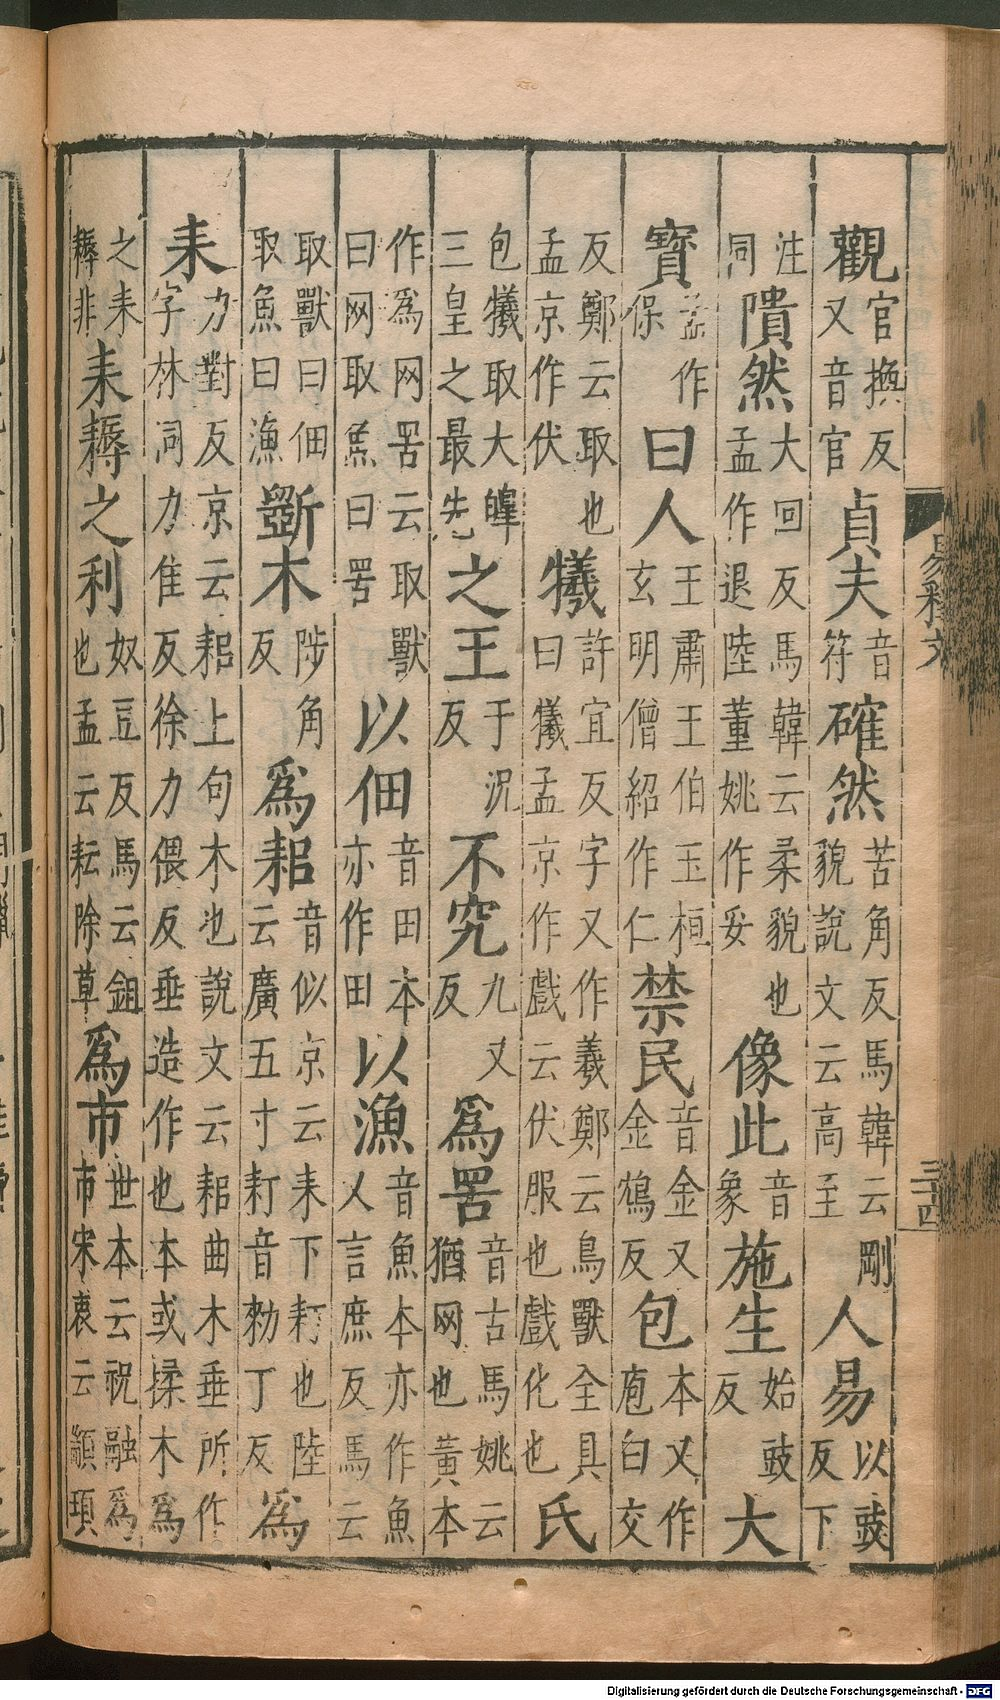 觀官換反又音官貞夫音符確然苦角反馬韓云剛貌說文云高至人易以豉反下
注同隤然大回反馬韓云柔貌也孟作退陸董姚作妥像此音象施生始豉反大
寳孟作保曰人王肅王伯玉桓玄明僧紹作仁禁民音金又金鴆反包本又作庖白交
反鄭云取也孟京作伏犧許宜反字又作羲鄭云鳥獸全具曰犧孟京作戲云伏服也戲化也氏
包犧取大皥三皇之最先之王于况反不究九又反爲罟音古馬姚云猶网也黄本
作爲网罟云取獸曰网取魚曰罟以佃音田本亦作田以漁音魚本亦作魚又言庶反馬云
取獸曰佃取魚曰漁斵木陟角反爲耜音似京云耒下耓也陸云廣五寸耓音勑丁反爲
耒力對反京云耜上句木也說文云耜曲木垂所作字林同力隹反徐力偎反垂造作也本或揉木爲
之耒耨非耒耨之利奴豆反馬云鉏也孟云耘除草爲市世本云祝融爲市宋衷云顓頊
易釋文
三十四
Digitalisierung gefördert durch die Deutsche Forschungsgemeinschaft - DFG